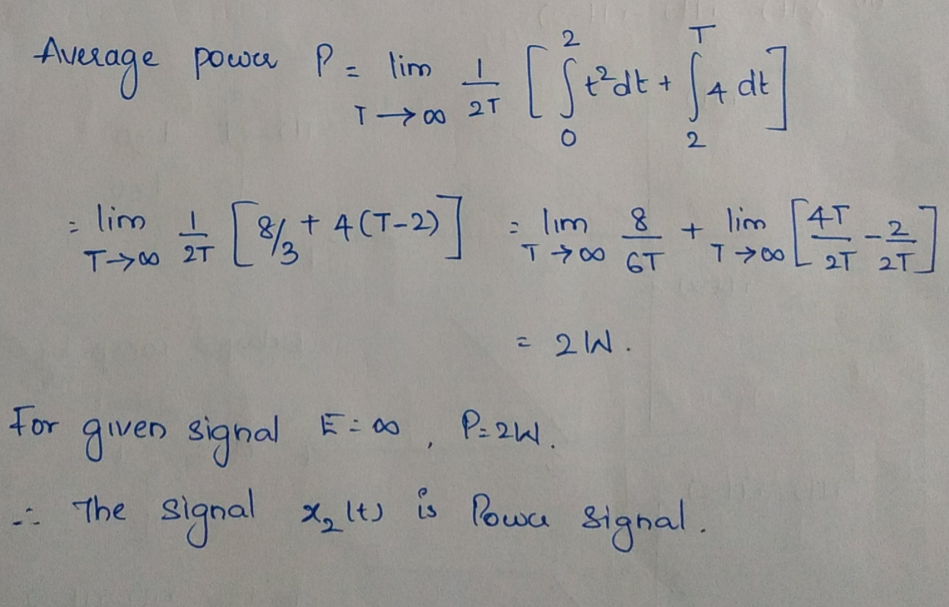 Average power P = lim T→∞ 1/2T [ ∫₀² t²dt + ∫₂ᵀ 4 dt ]
= lim T→∞ 1/2T [ 8/3 + 4(T-2) ] = lim T→∞ 8/6T + lim T→∞ [ 4T/2T - 2/2T ]
= 2W.
For given signal E = ∞, P = 2W.
∴ The signal x₂(t) is Power signal.